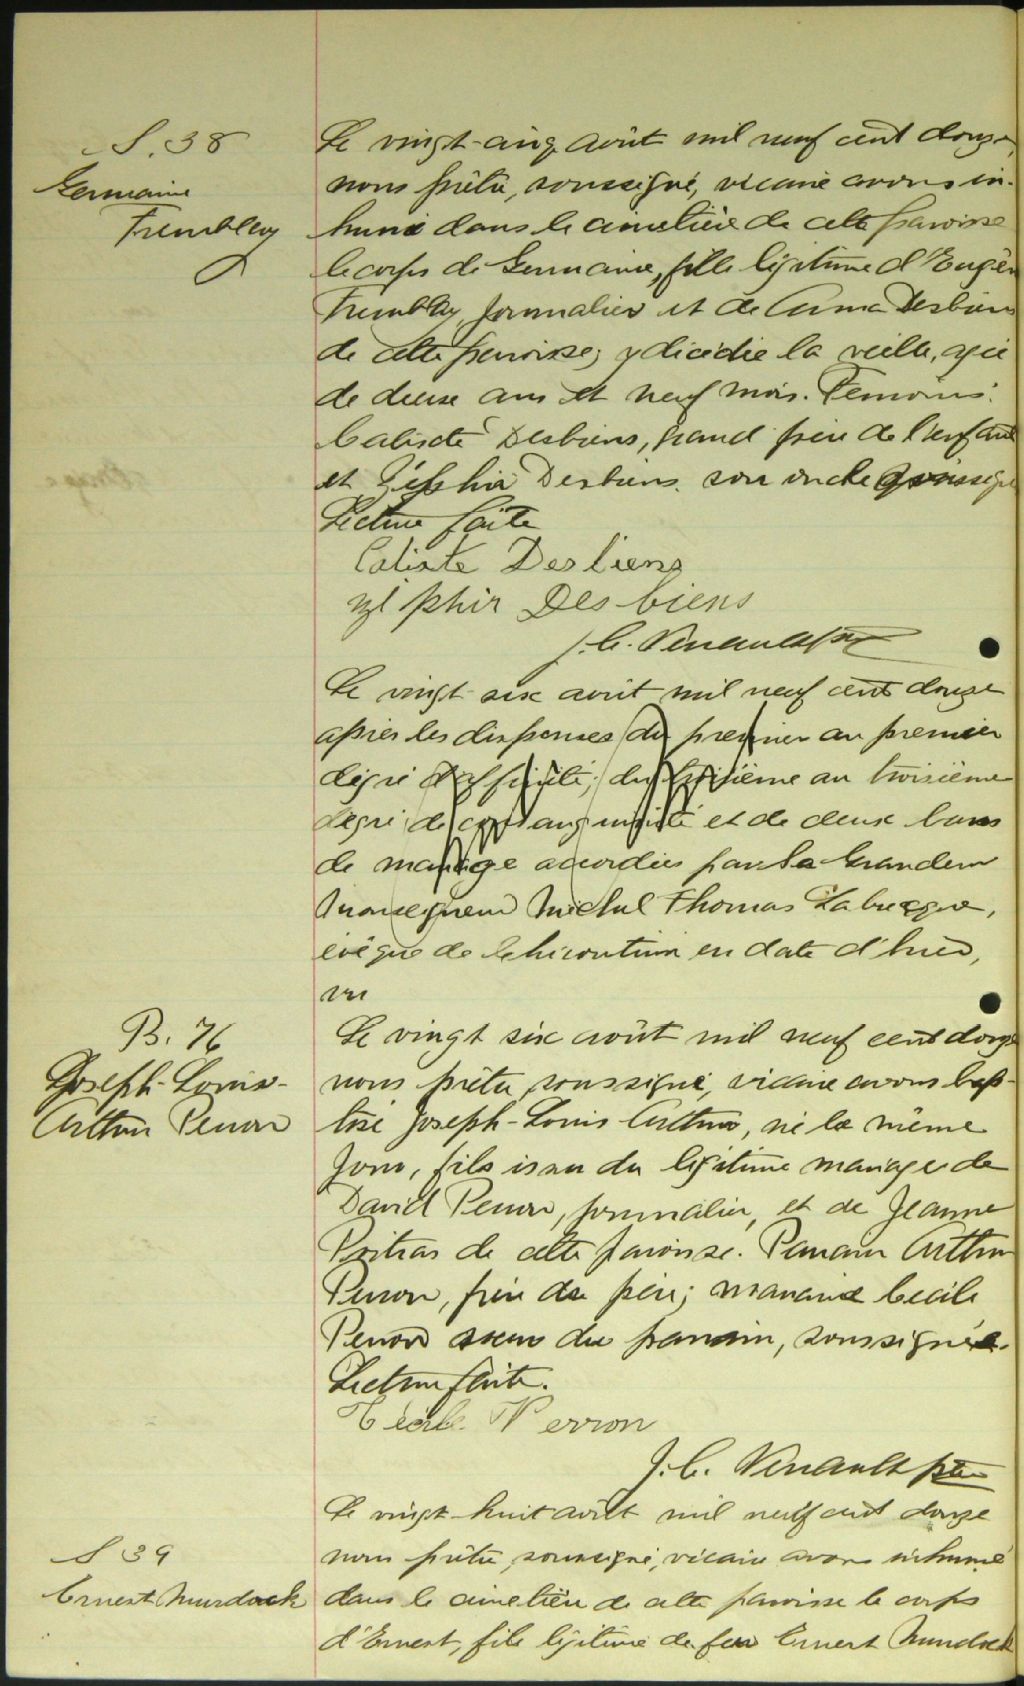 S. 38
Germaine
Tremblay
Le vingt-cinq août mil neuf cent douze,
nous prêtre, soussigné, vicaire avons in-
humé dans le cimetière de cette paroisse
le corps de Germaine, fille légitime d'Eugène
Tremblay, journalier et de Anna Desbiens
de cette paroisse; y décédée la veille, agée
de deux ans et neuf mois. Témoins:
Calixte Desbiens, grand père de l'enfant
et Zéphir Desbiens son oncle soussignés
Lecture faite
Calixte Desbiens
zéphir Desbiens
J.C. ptr
Le vingt-six août mil neuf cent douze
après les dispenses du premier au premier
dégré d'affinité; du troisième au troisième
dégré de consanguinité et de deux bans
de mariage accordées par Sa Grandeur
Monseigneur Michel Thomas Labrecque,
évêque de Chicoutimi en date d'hier,
vu
B. 76
Joseph-Louis-
Arthur Perron
Le vingt six août mil neuf cent douze
nous prêtre, soussigné, vicaire avons bap-
tisé Joseph-Louis Arthur, né le même
jour, fils issu du légitime mariage de
David Perron, journalier, et de Jeanne
Poitras de cette paroisse. Parrain Arthur
Perron, frère du père; marraine Cécile
Perron soeur du parrain, soussignée.
Lecture faite.
Cécile Perron
J.C. ptre
S 39
Ernest Murdock
Le vingt-huit août mil neuf cent douze
nous prêtre, soussigné, vicaire avons inhumé
dans le cimetière de cette paroisse le corps
d'Ernest, fils légitime de feu Ernest Murdock